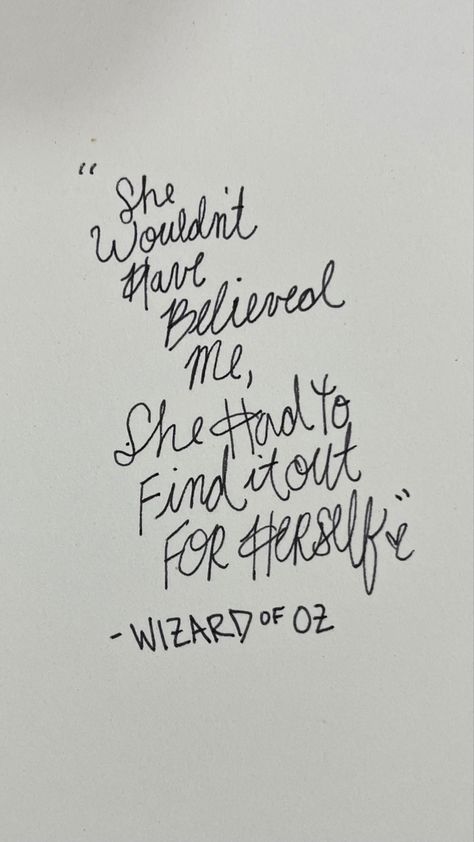 "She
Wouldn't
Have
Believed
Me,
She Had To
Find it out
FOR HERSElf"
-WIZARD OF OZ